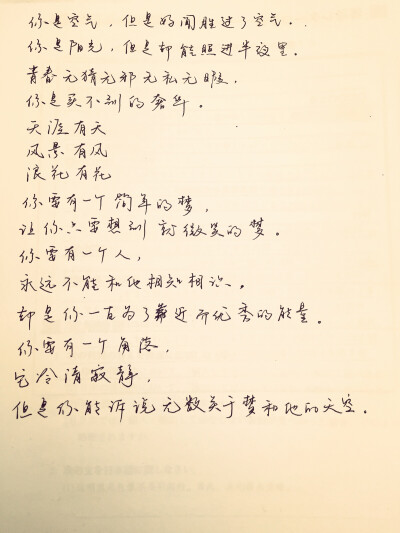 你是空气，但是好闻胜过了空气。
你是阳光，但是却能照进半夜里。
青春无猜无邪无私无暇。
你是买不到的奢华。
天涯有天
风景有风
浪花有花
你需有一个简单的梦，
让你只要想到就微笑的梦。
你需有一个人，
永远不能和他相知相识、
却是你一直为了靠近而优秀的能量。
你需有一个角落，
它冷清寂静，
但是你能诉说无数关于梦和他的天空。